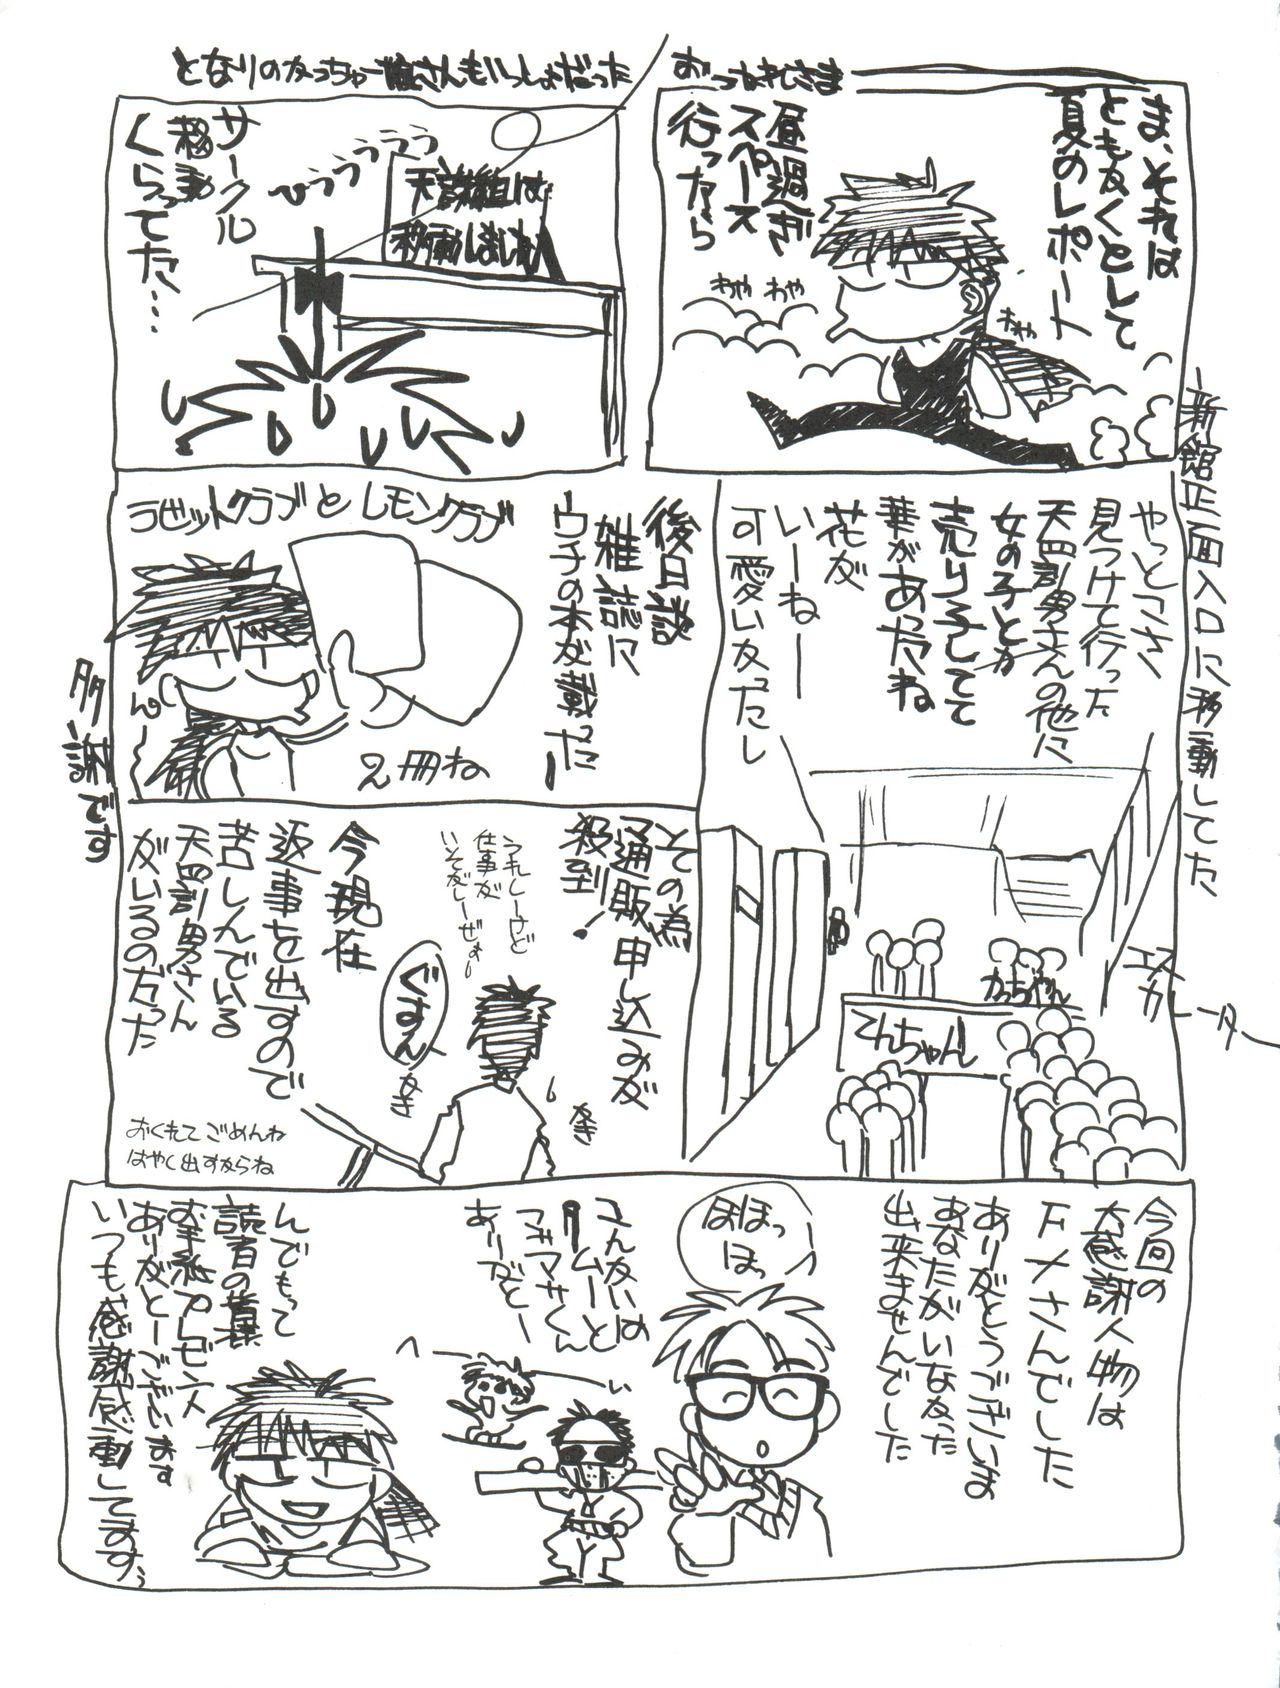 おつかれさま
ま、それは
ともかくとして
夏のレポート
昼過ぎ
スペース
行ったら
わや わや
わや
となりのかっちゃー
さんもいっしょだった
天誅組は
移動しました
ひううううう
サークル
移動
くらってた…
新館正面入口に移動してた
やっとこさ
見つけて行った
天誅男さんの他に
女の子とか
売り子してて
華があったね
花が
いーねー
可愛いかったし
エスカレーター
かっちゃん
てんちゃん
後日談
雑誌に
ウチの本が載った
ラビットクラブとレモンクラブ
ん〜
2冊ね
多謝です
その為
通販申し込みが
殺到!
うれしーけど
仕事が
いそがしーぜぇー
今現在
返事を出すので
苦しんでいる
天誅男さん
がいるのだった
ぐすん
おくれてごめんね
はやく出すからね
今回の
大感謝人物は
下〆さんでした
ありがとうございま
あなたがいなかった
出来ませんでした
ほほっ
ほっ
コマサくん
ありがとー
んでもって
読者の皆様
お手紙プレゼント
ありがとーございます
いつも感謝感動してますぅ